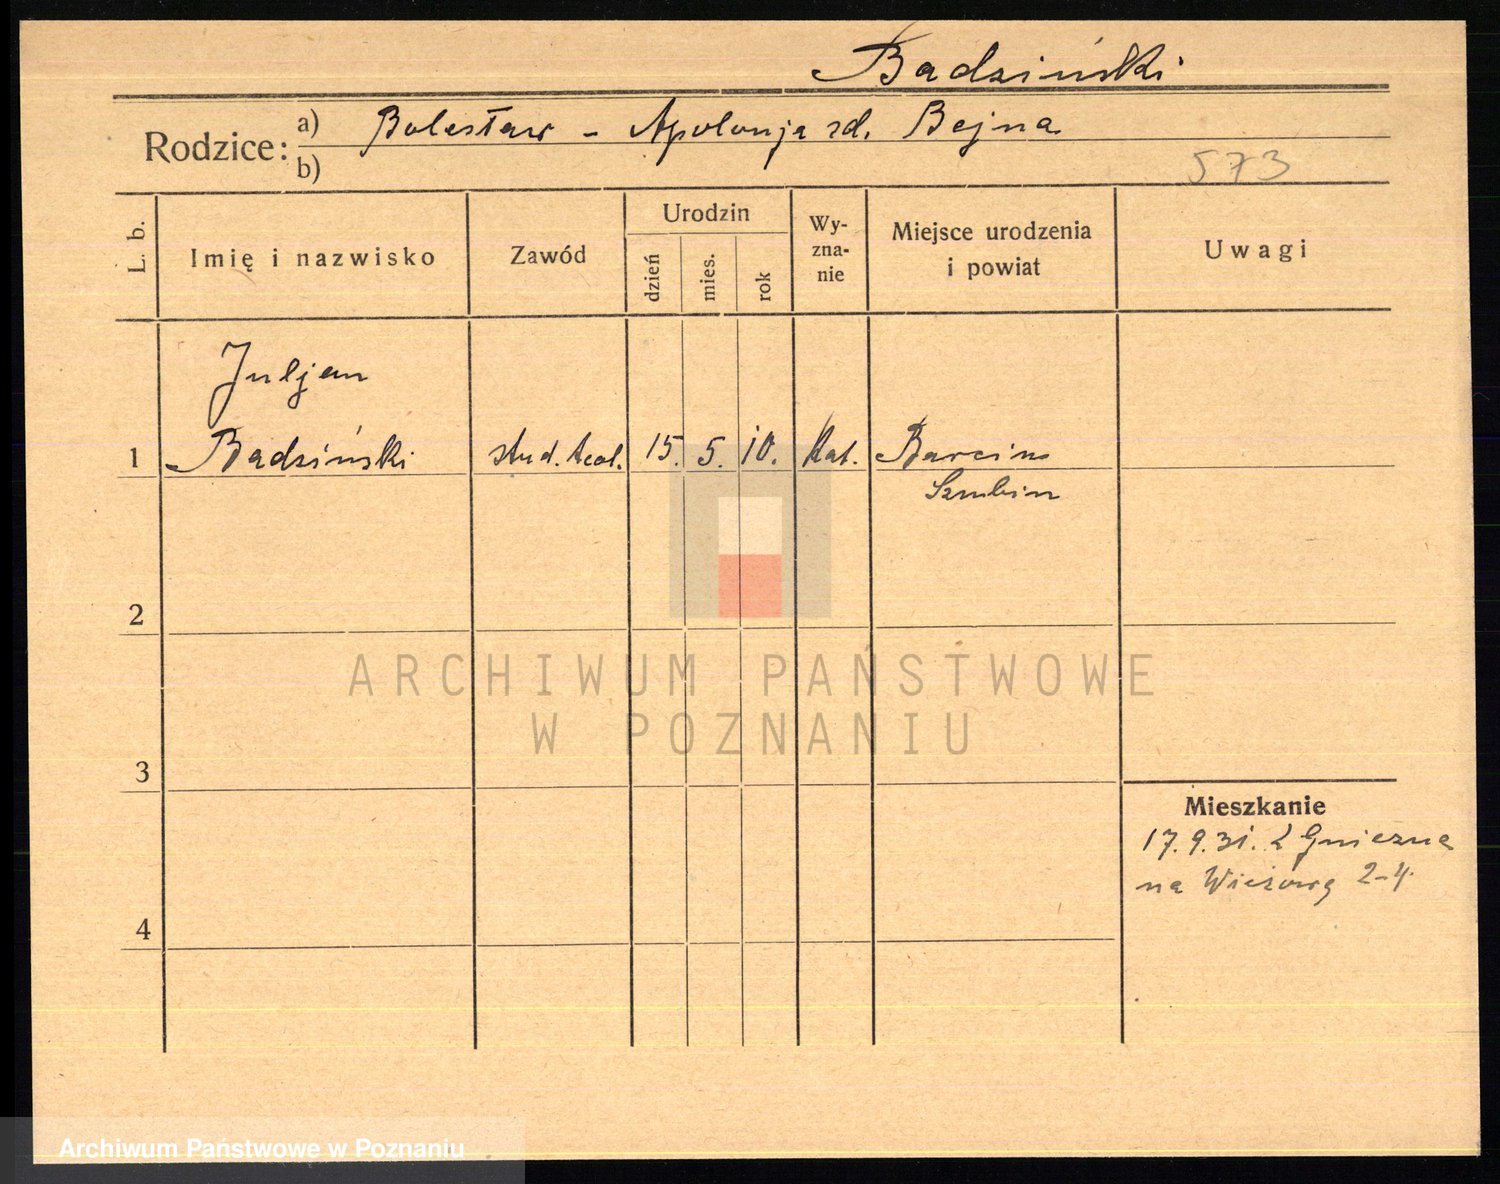 Badziński
Rodzice:
a) Bolesław - Apolonja zd. Bejna
b)
573
L. b.
Imię i nazwisko
Zawód
Urodzin
dzień
mies.
rok
Wy-
zna-
nie
Miejsce urodzenia
i powiat
Uwagi
Juljan
1 Badziński stud. teol. 15. 5. 10. Kat. Barcin
Szubin
2
ARCHIWUM PAŃSTWOWE
W POZNANIU
3
Mieszkanie
17.9.31. z Gniezna
na Wieżową 2-4.
4
Archiwum Państwowe w Poznaniu